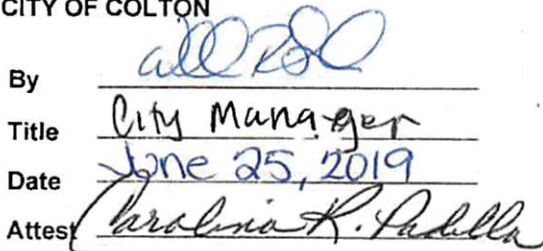 CITY OF COLTON
By
Title City Manager
Date June 25, 2019
Attest Carolina R. Padilla